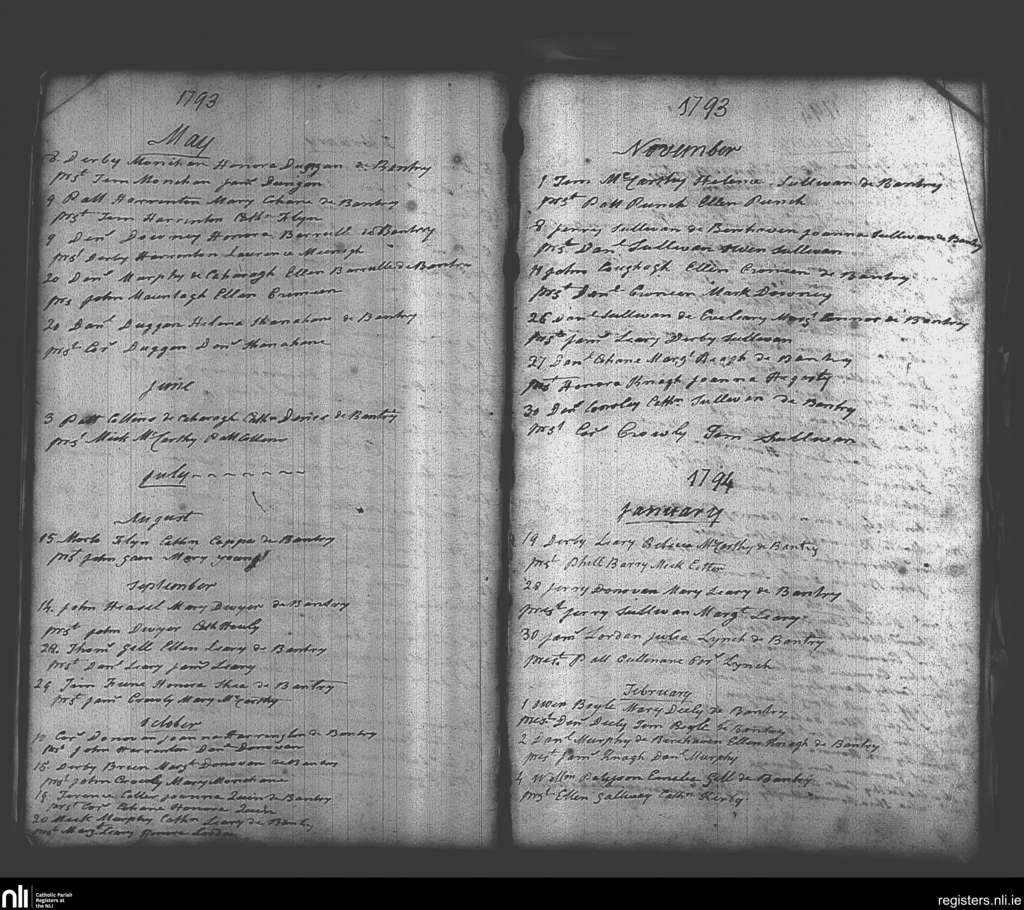 1793
May
8 Derby Monehan Honora Duggan de Bantry
prst Tem Monehan Jams Dungan
9 Patt Harrenton Mary Cohane de Bantry
prst Tem Harrinton Cathn Flyn
9 Denl Downey Honora Barrull de Bantry
prst Derby Harrenton Laurence
20 Danl Murphy de Caharagh Ellen Barrulle de Bantry
prs John Ellen Cremeen
20 Danl Duggan Helena Shanahane de Bantry
prst Corl Duggan Danl Shanahane
June
3 Patt Collins de Caharagh Cathn de Bantry
prst Mick McCarthy Patt Collins
July
August
15 Flyn Cathn Coppe de Bantry
prst John Mary young
September
14 John Mary Dwyer de Bantry
prst John Dwyer Cath Hauly
28 Thoms Gall Ellen Leary de Bantry
prst Danl Leary Jams Leary
29 Honora Shea de Bantry
prst Jams Crowly Mary McCarthy
October
10 Corl Donovan Joanna Harrington de Bantry
prst John Harrenton Danl Donovan
15 Derby Breen Margt Donovan de Bantry
prst John Crowly Mary Monehane
18 Terence Cotter Joanna Quin de Bantry
prst Corl Cohane Honora Quin
20 Mick Murphy Cathn Leary de Bantry
prst Margt Leary Honora Lordan
1793
November
1 Tem McCarthy Helena Sullivan de Bantry
prst Patt Punch Ellen Punch
8 Jerry Sullivan de Bearhaven Joanna Sullivan de Bantry
prst Danl Sullivan Owen Sullivan
11 John Coughagh Ellen Croneen de Bantry
prst Danl Croneen Mark Downey
26 Danl Sullivan de Margt Connor de Bantry
prst Jams Leary Derby Sullivan
27 Danl Cohane Margt Reagh de Bantry
prst Honora Knagh Joanna Hegerty
30 Danl Cathn Sullivan de Bantry
prst Corl Crowly Tem Sullivan
1794
January
19 Derby Leary McCarthy de Bantry
prst Phill Barry Mick
28 Jerry Donovan Mary Leary de Bantry
prest Jerry Sullivan Margt Leary
30 Jams Lordan Julia Lynch de Bantry
prest Patt Cullenane Corl Lynch
February
1 Owen Boyle Mary Deely de Bantry
prest Danl Deely Tem Boyle de Bantry
2 Danl Murphy de Bearhaven Ellen Knagh de Bantry
prest Jams Knagh Danl Murphy
4 Willm Gall de Bantry
prst Ellen Gallwey Cathn Kerby
nli
Catholic Parish
Registers at
the NLI
registers.nli.ie